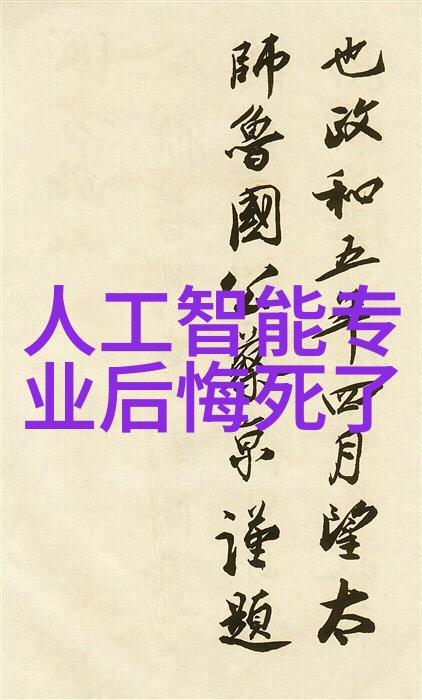 也政和五年四月望太
師魯國公蔡京謹題
人工智能专
业后悔死了